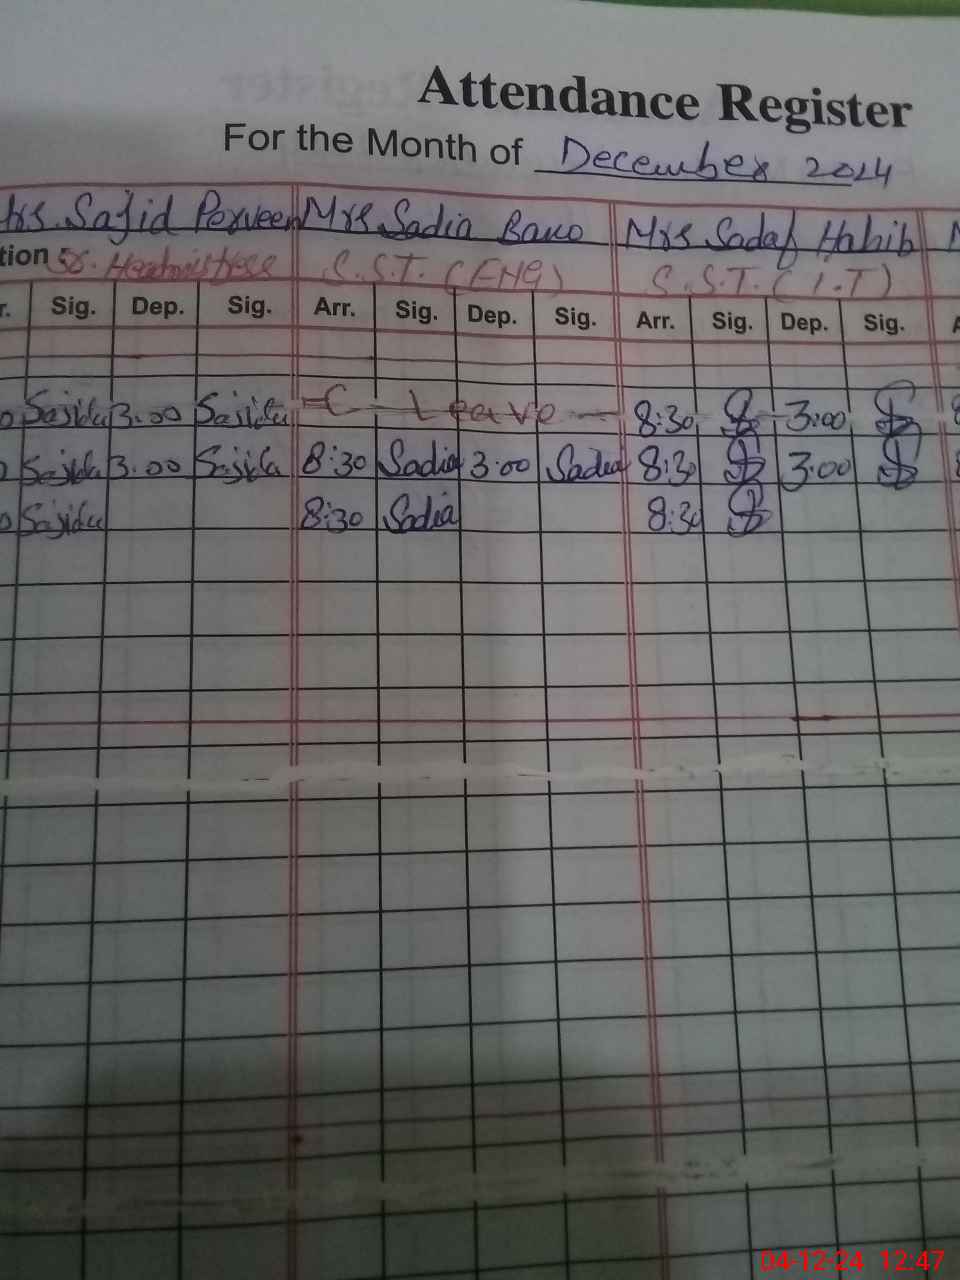 Attendance Register
For the Month of December 2024
Mrs Sajid Perveen Mrs Sadia Bano Mrs Sadaf Habib
tion SS. Headmistress S.S.T. (ENG) S.S.T. (I.T)
r. Sig. Dep. Sig. Arr. Sig. Dep. Sig. Arr. Sig. Dep. Sig.
Sajida 3.00 Sajida C Leave 8:30 3:00
Sajida 3.00 Sajida 8:30 Sadia 3:00 Sadia 8:30 3:00
Sajida 8:30 Sadia 8:30
04-12-24 12:47